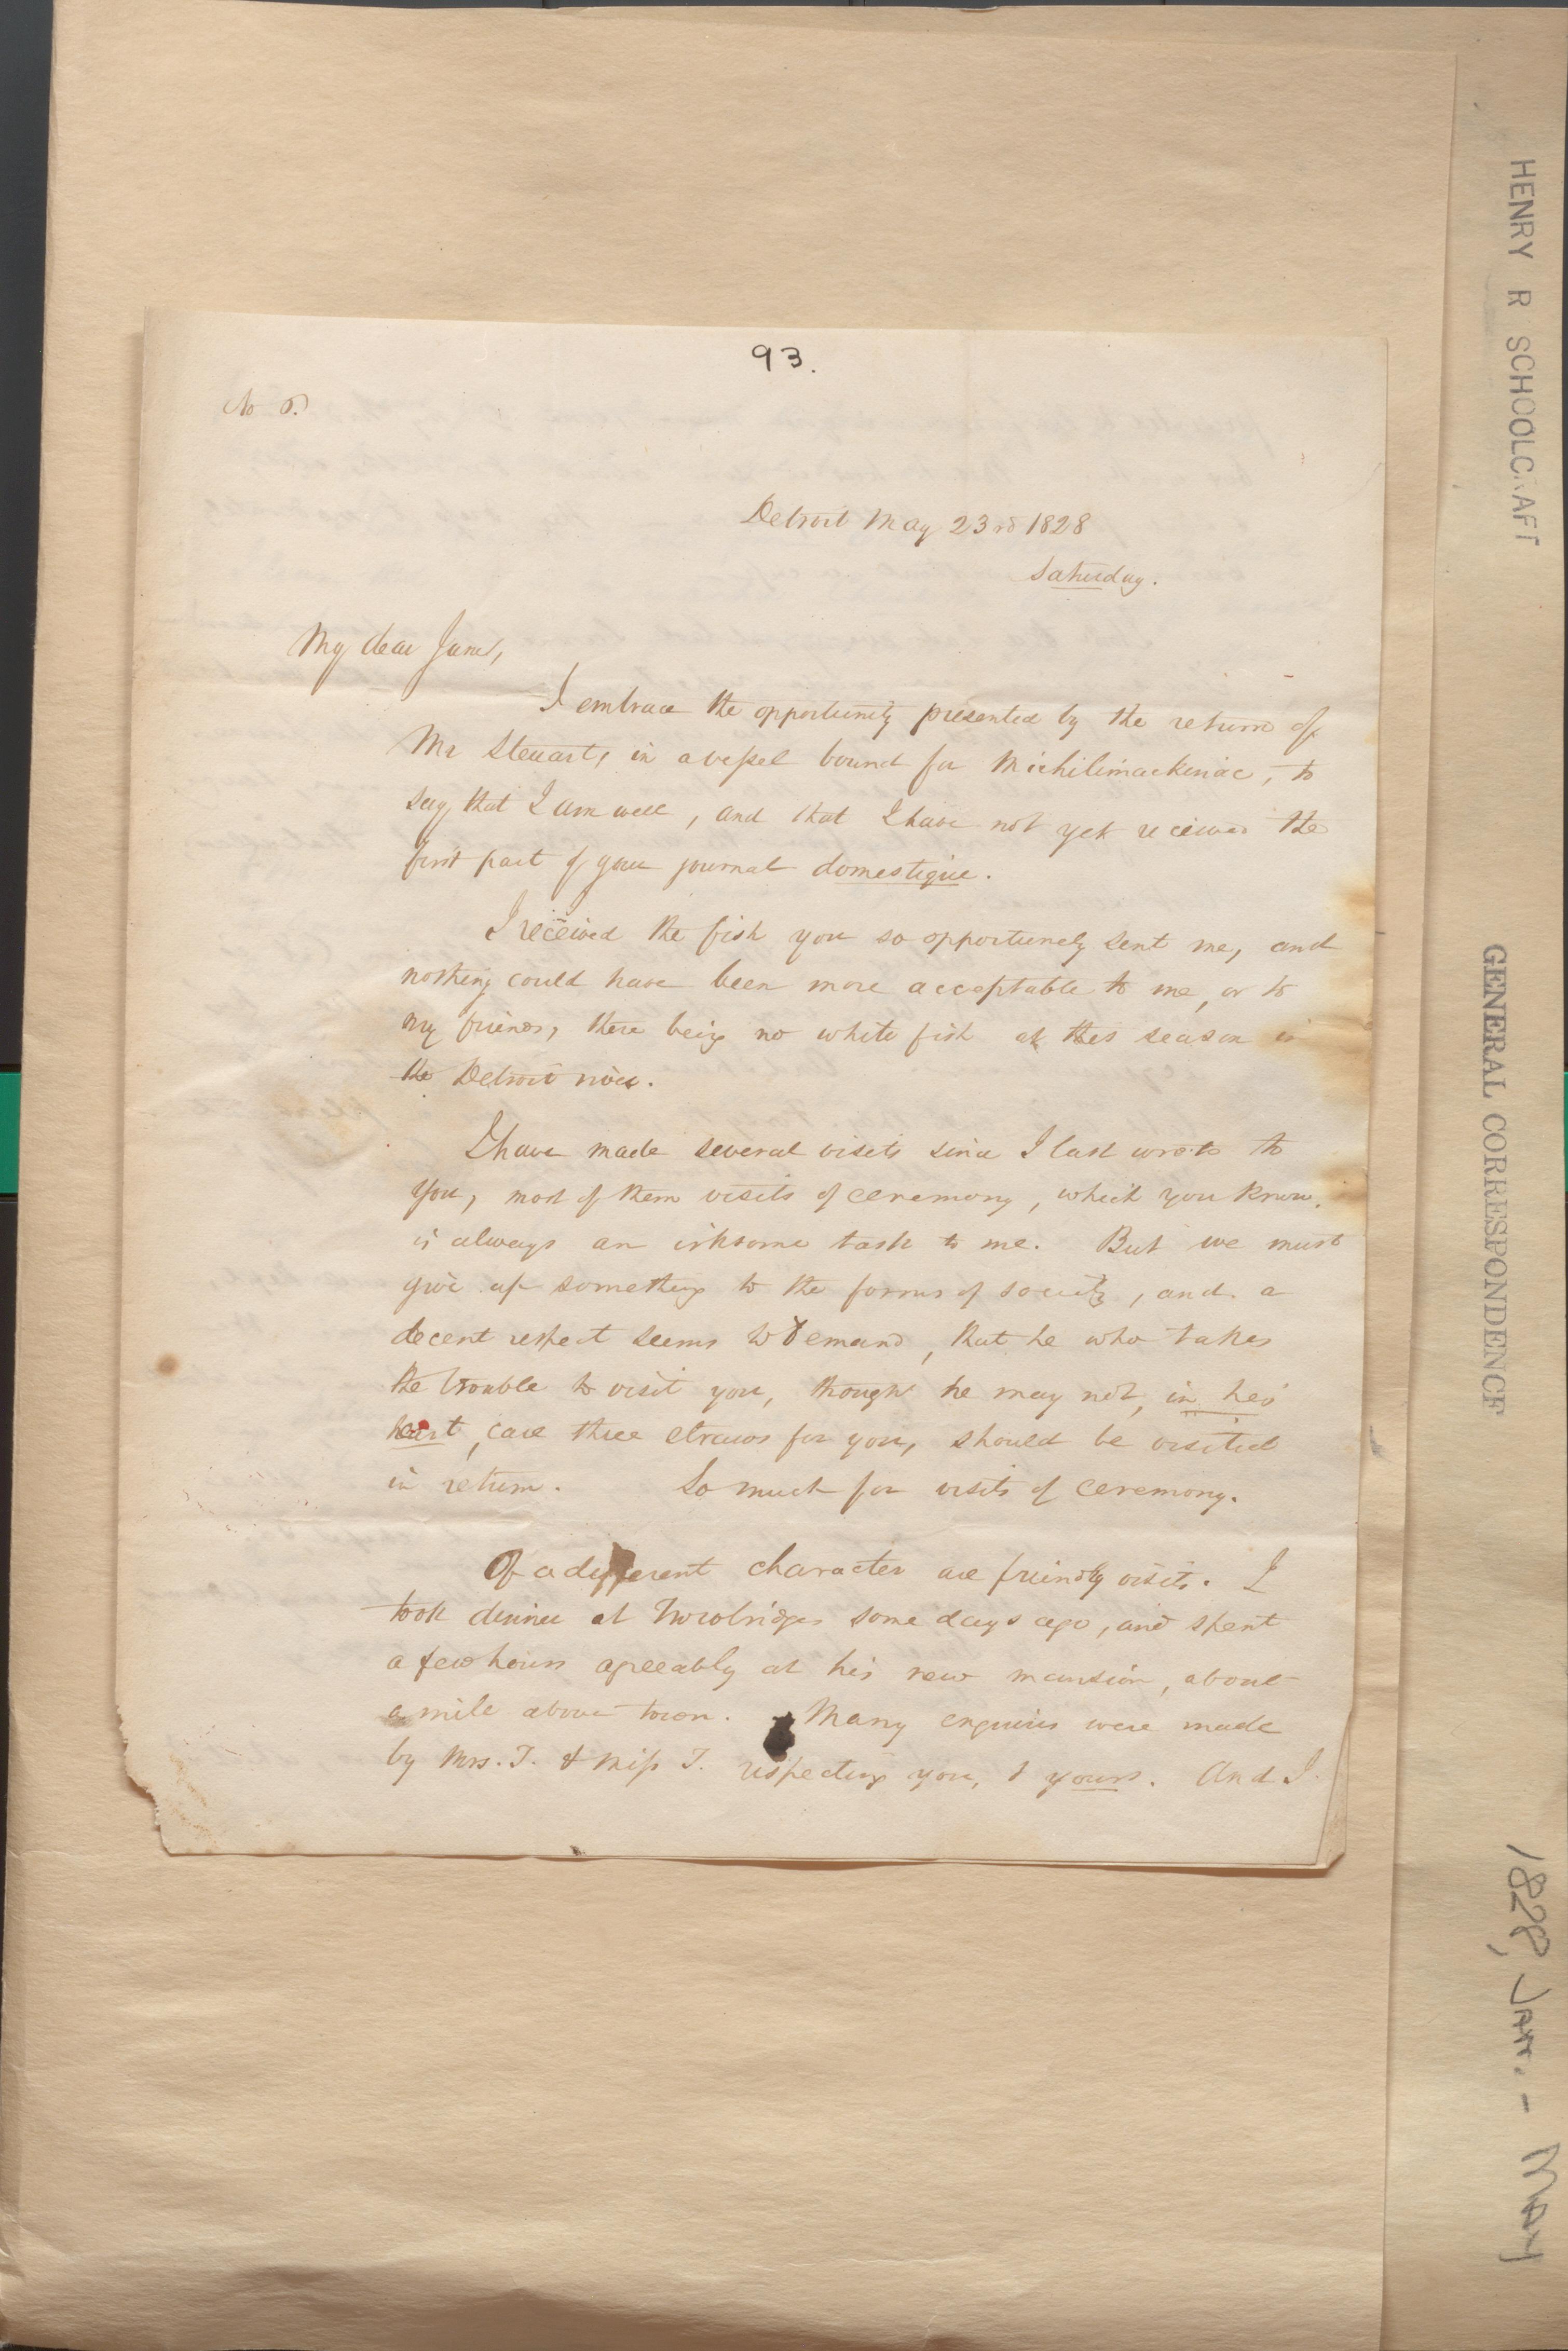 93.
No 6.
Detroit May 23rd 1828
Saturday.
My dear Jane,
I embrace the opportunity presented by the return of
Mr Stewart, in a vessel bound for Michilimackinac, to
say that I am well, and that I have not yet received the
first part of your journal domestique.
I received the fish you so opportunely sent me, and
nothing could have been more acceptable to me, or to
my friends, there being no white fish at this season in
the Detroit river.
I have made several visits since I last wrote to
you, most of them visits of ceremony, which you know,
is always an irksome task to me. But we must
give up something to the forms of society, and a
decent respect seems to demand, that he who takes
the trouble to visit you, though he may not, in his
heart, care three straws for you, should be visited
in return. So much for visits of ceremony.
Of a different character are friendly visits. I
took dinner at Trowbridges some days ago, and spent
a few hours agreeably at his new mansion, about
a mile above town. Many enquiries were made
by Mrs. T. & Miss T. respecting you, & yours. And I
HENRY R SCHOOLCRAFT
GENERAL CORRESPONDENCE
1828, Jan. - May